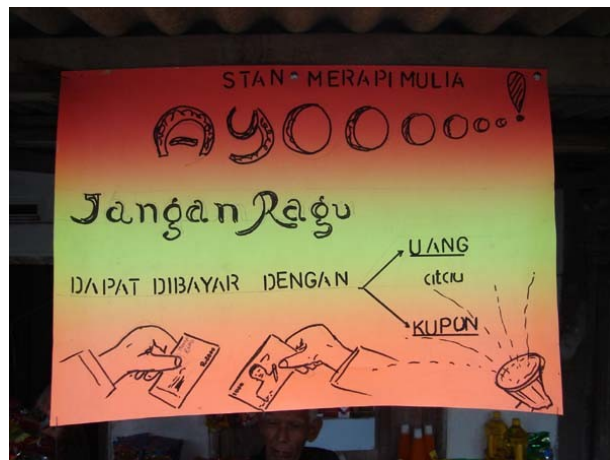 STAN MERAPI MULIA
AYOOOOooo!
Jangan Ragu
DAPAT DIBAYAR DENGAN
UANG
atau
KUPON